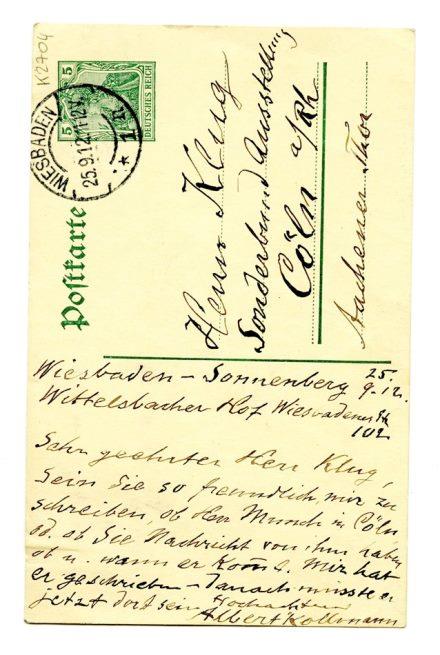 K2704
5 5
DEUTSCHES REICH
WIESBADEN
25.9.12. 11-12V.
* 1 n
Postkarte
Herrn Klug
Sonderbund Ausstellung
Cöln a/Rh
Aachener Thor
Wiesbaden – Sonnenberg 25.
9.12.
Wittelsbacher Hof Wiesbadener Str
102
Sehr geehrter Herr Klug,
Sein Sie so freundlich mir zu
schreiben, ob Herr Munch in Cöln
od. ob Sie Nachricht von ihm haben
ob u. wann er kommt. Mir hat
er geschrieben – danach müsste er
jetzt dort sein Hochachtend
Albert Kollmann